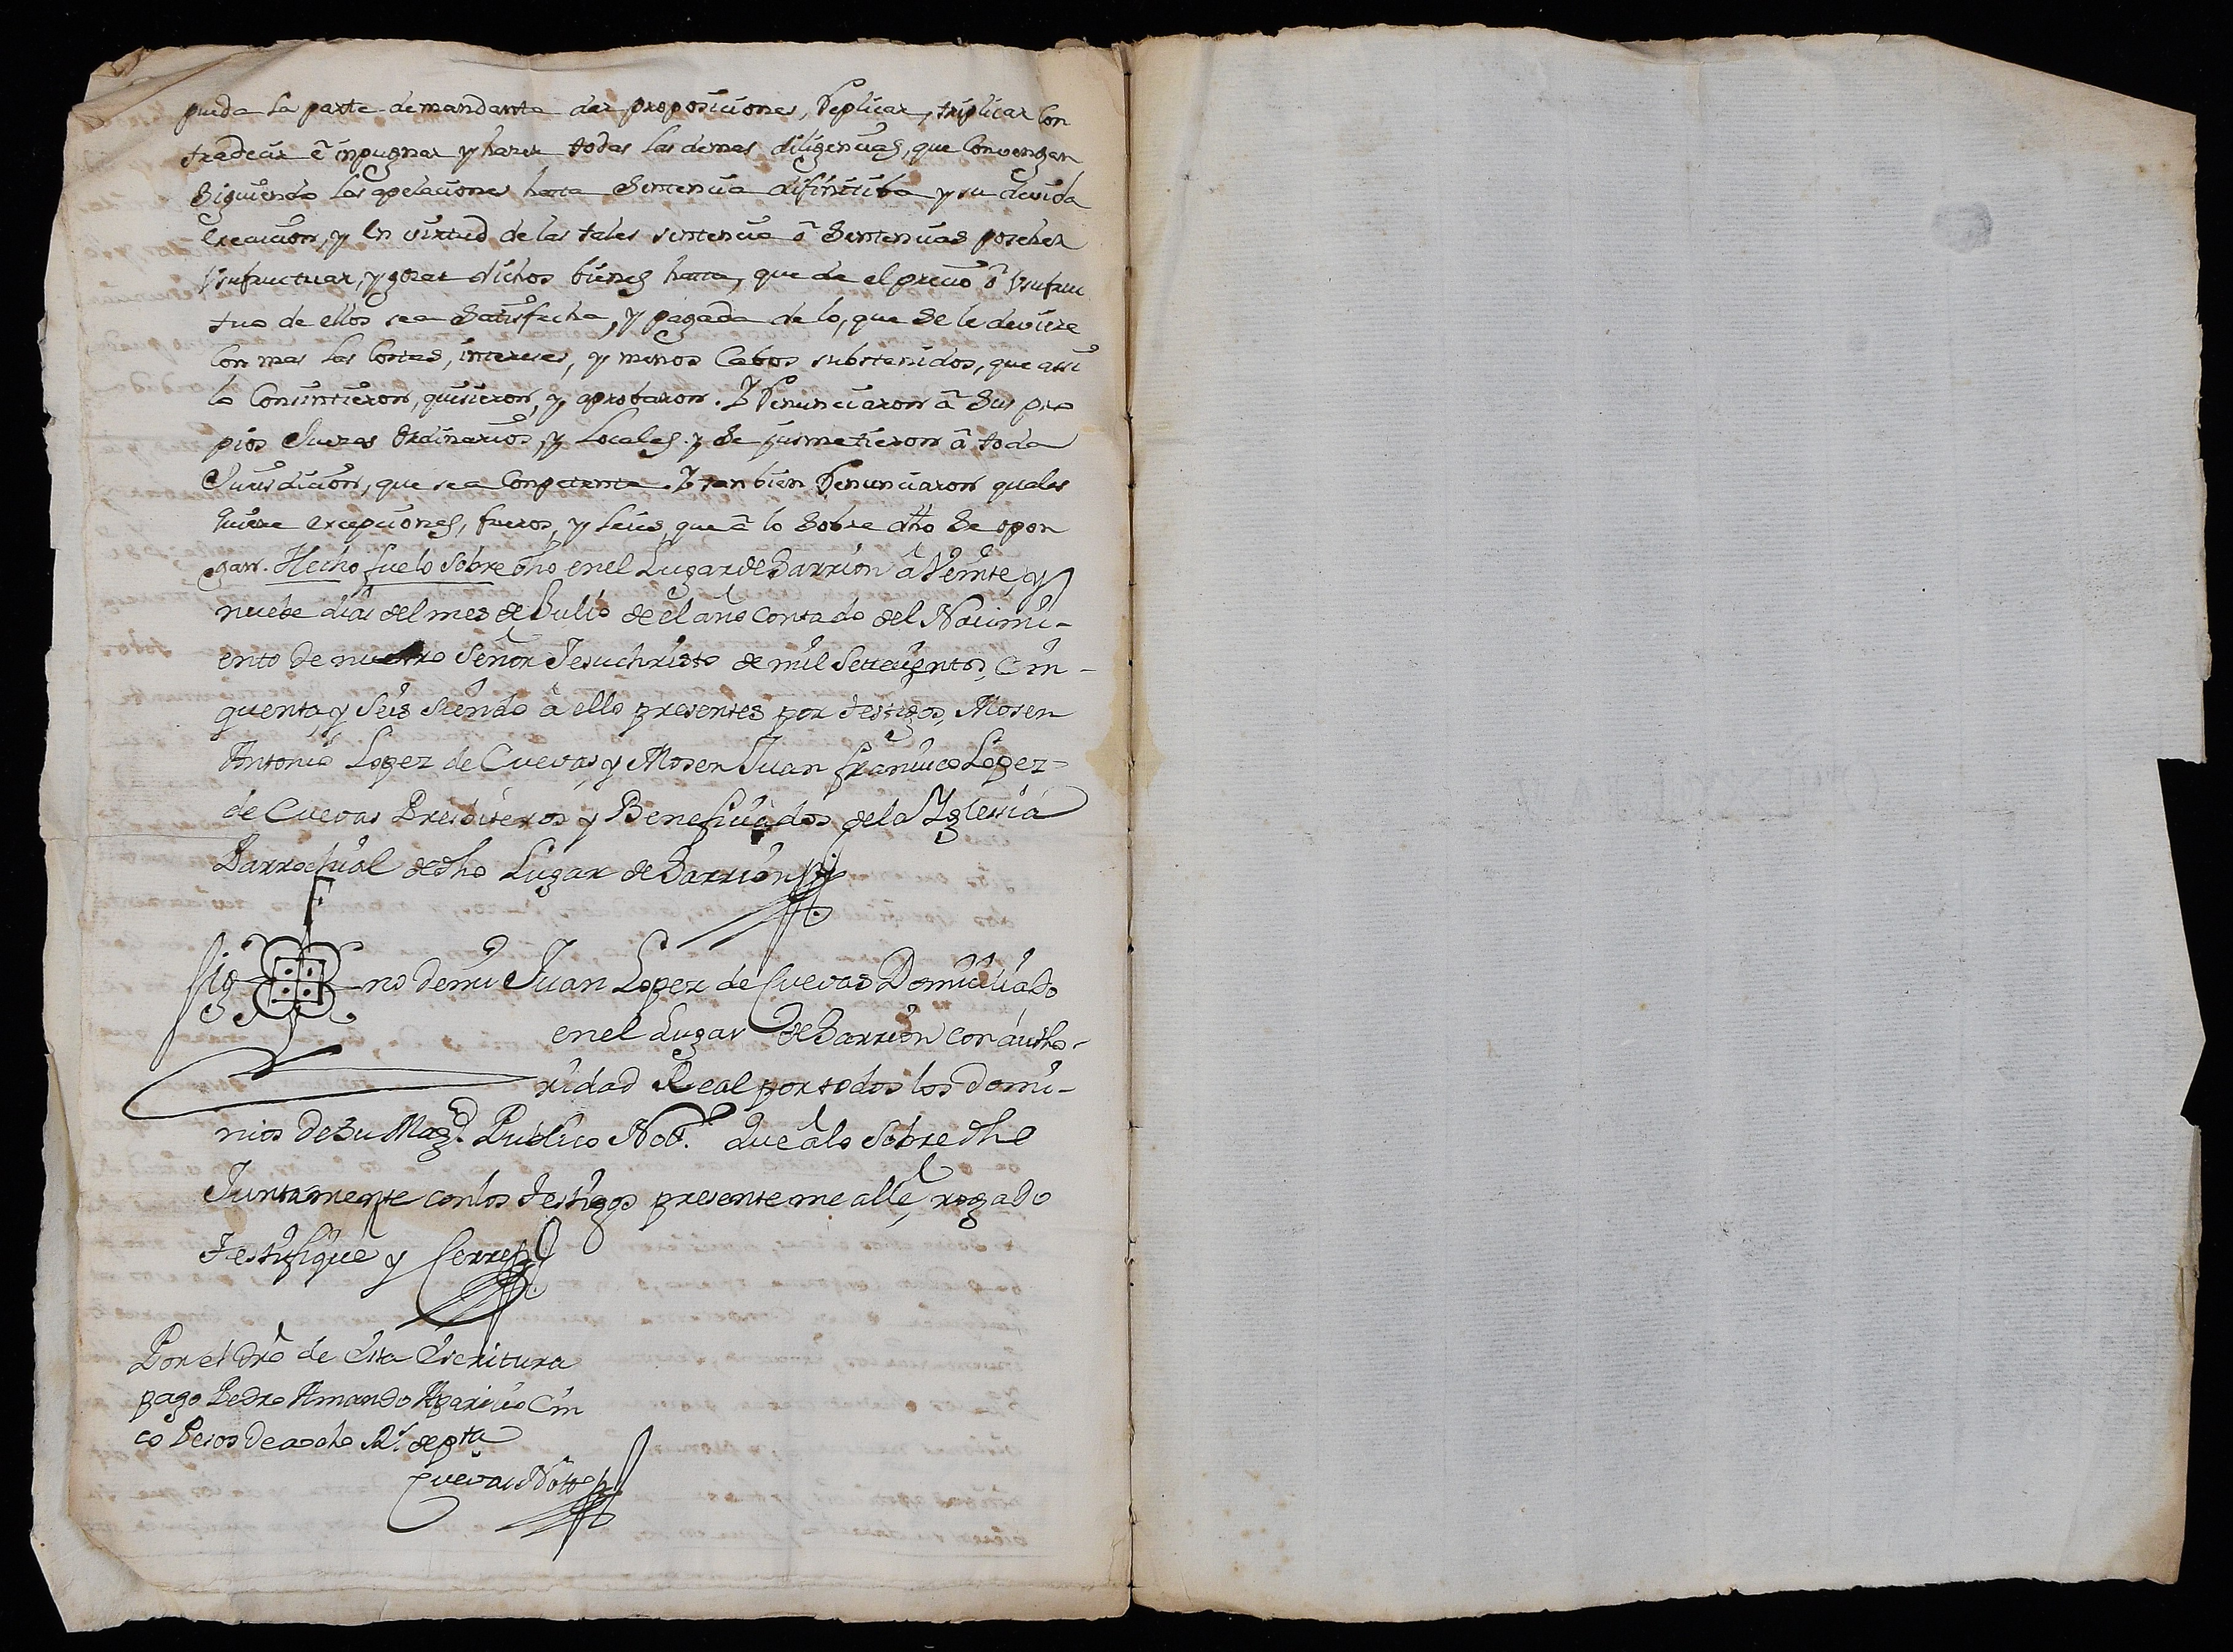 pueda la parte demandanta dar proposiciones, Replicar, triplicar Con
tradecir ê inpugnar y hazer todas las demas diligencias, que Convengan
Siguiendo las apelaciones hasta Sentencia difinitiba y su devida
execucion, y en virtud de las tales sentencia ô Sentencias poseher
Vsufructuar, y gozar dichos bienes hasta, que de el precio ô Vsufruc
tuo de ellos sea Satisfecha, y pagada de lo, que se le deviere
Con mas las Costas, intereses, y menos Cabos substenidos, que assi
lo Consintieron, quisieron, y aprobaron. Y Renunciaron â Sus pro
pios Juezes Ordinarios, y Locales y se jusmetieron â toda
Jurisdicion, que sea Conpetente. Y tanbien Renunciaron quales
quiere excepciones, fueros, y Leies, que â lo Sobre dho Se opon
gan. Hecho fue lo sobre dho en el Lugar de Sarrion â Veinte, y
nuebe dias del mes de Julio de el año contado del Nacimi-
ento de nuestro Señor Jesuchristo de mil Setecientos, Cin-
quenta, y Seis siendo â ello presentes por testigos, Mosen
Antonio Lopez de Cuevas, y Mosen Juan francisco Lopez
de Cuevas Presbiteros y Beneficiados de la Yglesia
Parrochial de dho Lugar de Sarrion
Sig-no de mi Juan Lopez de Cuevas Domiciliado
en el Lugar de Sarrion con autho-
ridad Real por todos los Domi-
nios de su Magd. Publico Notº. que â lo Sobre dho
Juntamente con los testigos presente me allé, rogado
testifiqué y Cerré
Por el dro de esta escritura
pago Pedro Amando Aparicio Cin
co Pesos de a ocho Rs. de pta
Cuevas Notº